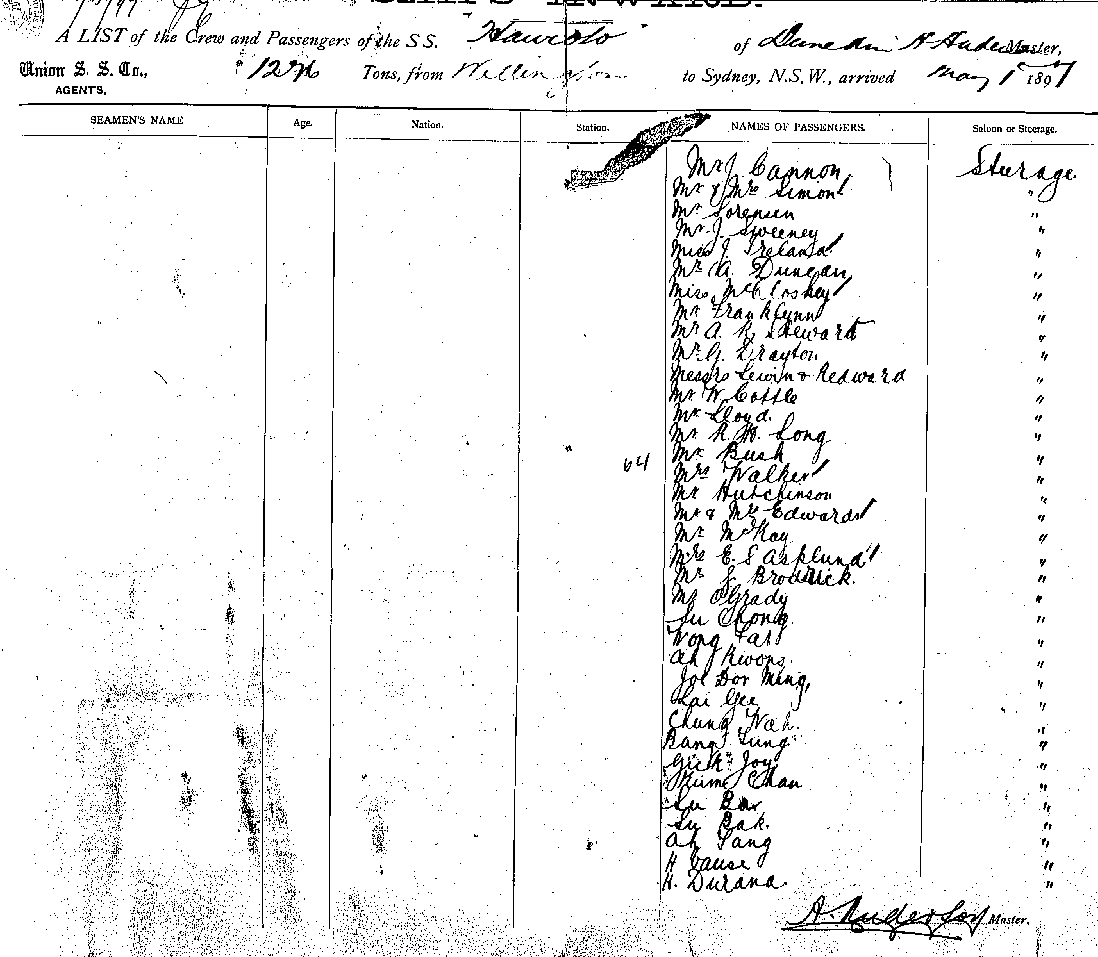 SHIPS INWARD.
A LIST of the Crew and Passengers of the S.S. Hauroto of Dunedin A Anderson Master,
Union S. S. Co., AGENTS, 1276 Tons, from Wellington to Sydney, N.S.W., arrived May 1 1897
SEAMEN'S NAME Age. Nation. Station. NAMES OF PASSENGERS. Saloon or Steerage.
Mr J Cannon Sturage
Mr & Mrs Simon "
Mr Sorensen "
Mr J. Sweeney "
Miss J Ireland "
Mr A. Duncan "
Miss McCloskey "
Mr Frank Lynn "
Mr A. R. Steward "
Mr G. Drayton "
Messrs Lewin & Redward "
Mr W Cottle "
Mr Lloyd. "
Mr R. H. Long "
64 Mr Bush "
Mrs Walker "
Mr Hutchinson "
Mr & Mrs Edwards "
Mr McKay "
Mrs E. S Asplund "
Mr J Brodrick. "
Mr O'Grady "
Su Chong "
Wong "
Ah Kwong. "
Joe Dor Ming, "
Lai Gee "
Chung Wah. "
Bang Lung "
Joy "
Chan "
Su Bar "
Su Bak. "
Ah Sang "
H "
H. Durand. "
A. Anderson Master.